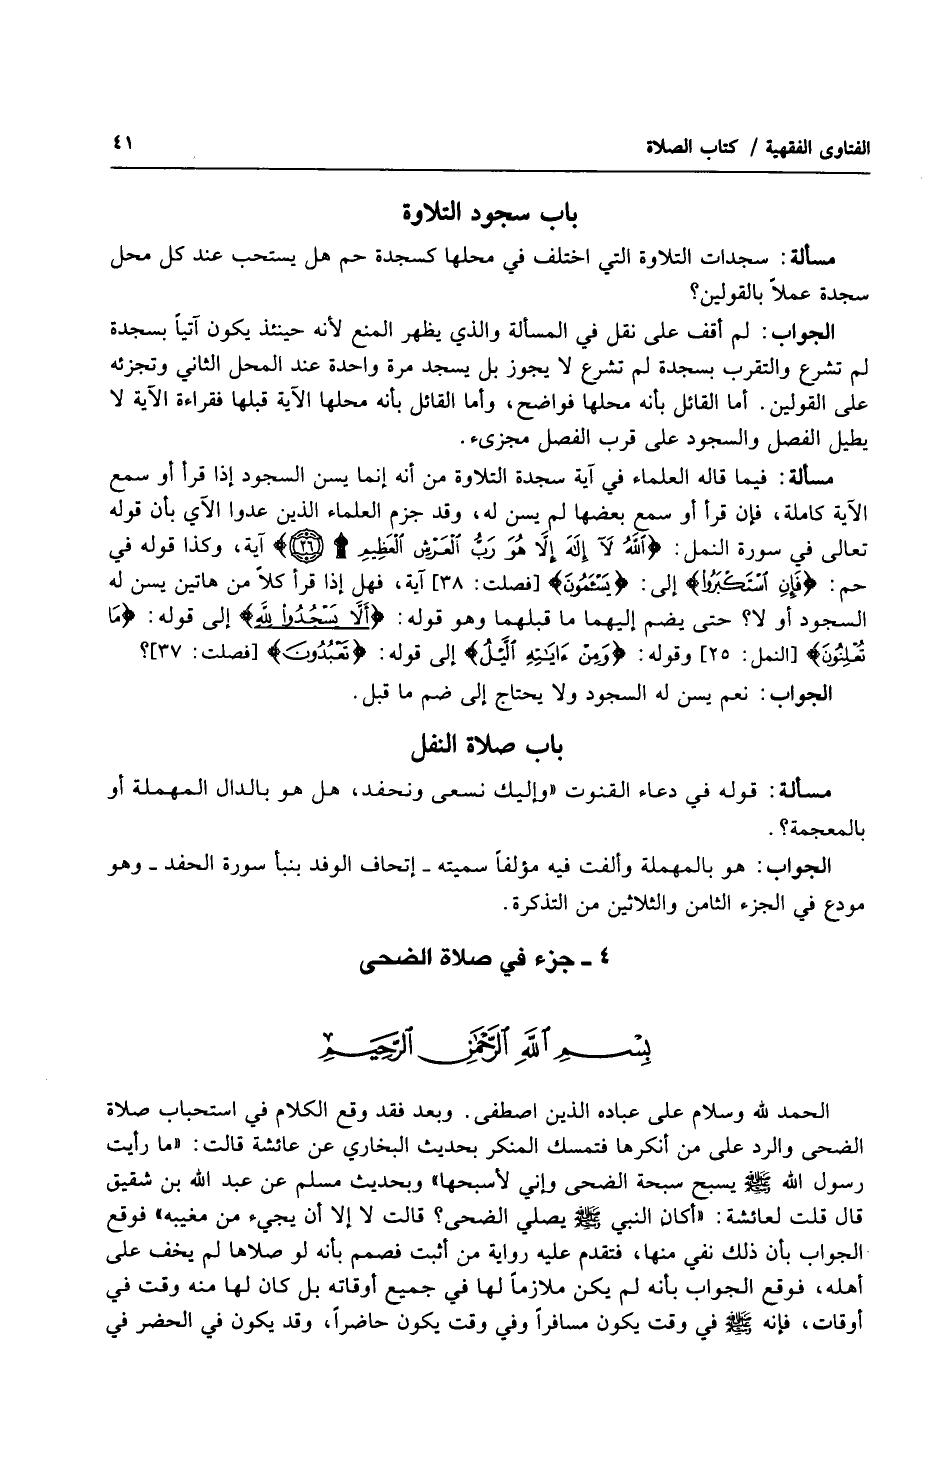 الفتاوى الفقهية / كتاب الصلاة ٤١
باب سجود التلاوة
مسألة: سجدات التلاوة التي اختلف في محلها كسجدة حم هل يستحب عند كل محل
سجدة عملاً بالقولين؟
الجواب: لم أقف على نقل في المسألة والذي يظهر المنع لأنه حينئذ يكون آتياً بسجدة
لم تشرع والتقرب بسجدة لم تشرع لا يجوز بل يسجد مرة واحدة عند المحل الثاني وتجزئه
على القولين. أما القائل بأنه محلها فواضح، وأما القائل بأنه محلها الآية قبلها فقراءة الآية لا
يطيل الفصل والسجود على قرب الفصل مجزىء.
مسألة: فيما قاله العلماء في آية سجدة التلاوة من أنه إنما يسن السجود إذا قرأ أو سمع
الآية كاملة، فإن قرأ أو سمع بعضها لم يسن له، وقد جزم العلماء الذين عدوا الآي بأن قوله
تعالى في سورة النمل: ﴿ٱللَّهُ لَآ إِلَٰهَ إِلَّا هُوَ رَبُّ ٱلْعَرْشِ ٱلْعَظِيمِ ۩ ٢٦﴾ آية، وكذا قوله في
حم: ﴿فَإِنِ ٱسْتَكْبَرُوا۟﴾ إلى: ﴿يَسْـَٔمُونَ﴾ [فصلت: ٣٨] آية، فهل إذا قرأ كلاً من هاتين يسن له
السجود أو لا؟ حتى يضم إليهما ما قبلهما وهو قوله: ﴿أَلَّا يَسْجُدُوا۟ لِلَّهِ﴾ إلى قوله: ﴿وَمَا
تُعْلِنُونَ﴾ [النمل: ٢٥] وقوله: ﴿وَمِنْ ءَايَٰتِهِ ٱلَّيْلُ﴾ إلى قوله: ﴿تَعْبُدُونَ﴾ [فصلت: ٣٧]؟
الجواب: نعم يسن له السجود ولا يحتاج إلى ضم ما قبل.
باب صلاة النفل
مسألة: قوله في دعاء القنوت «وإليك نسعى ونحفد، هل هو بالدال المهملة أو
بالمعجمة؟.
الجواب: هو بالمهملة وألفت فيه مؤلفاً سميته ـ إتحاف الوفد بنبأ سورة الحفد ـ وهو
مودع في الجزء الثامن والثلاثين من التذكرة.
٤ ـ جزء في صلاة الضحى
بِسْمِ ٱللَّهِ ٱلرَّحْمَٰنِ ٱلرَّحِيمِ
الحمد لله وسلام على عباده الذين اصطفى. وبعد فقد وقع الكلام في استحباب صلاة
الضحى والرد على من أنكرها فتمسك المنكر بحديث البخاري عن عائشة قالت: «ما رأيت
رسول الله ﷺ يسبح سبحة الضحى وإني لأسبحها» وبحديث مسلم عن عبد الله بن شقيق
قال قلت لعائشة: «أكان النبي ﷺ يصلي الضحى؟ قالت لا إلا أن يجيء من مغيبه» فوقع
الجواب بأن ذلك نفي منها، فتقدم عليه رواية من أثبت فصمم بأنه لو صلاها لم يخف على
أهله، فوقع الجواب بأنه لم يكن ملازماً لها في جميع أوقاته بل كان لها منه وقت في
أوقات، فإنه ﷺ في وقت يكون مسافراً وفي وقت يكون حاضراً، وقد يكون في الحضر في